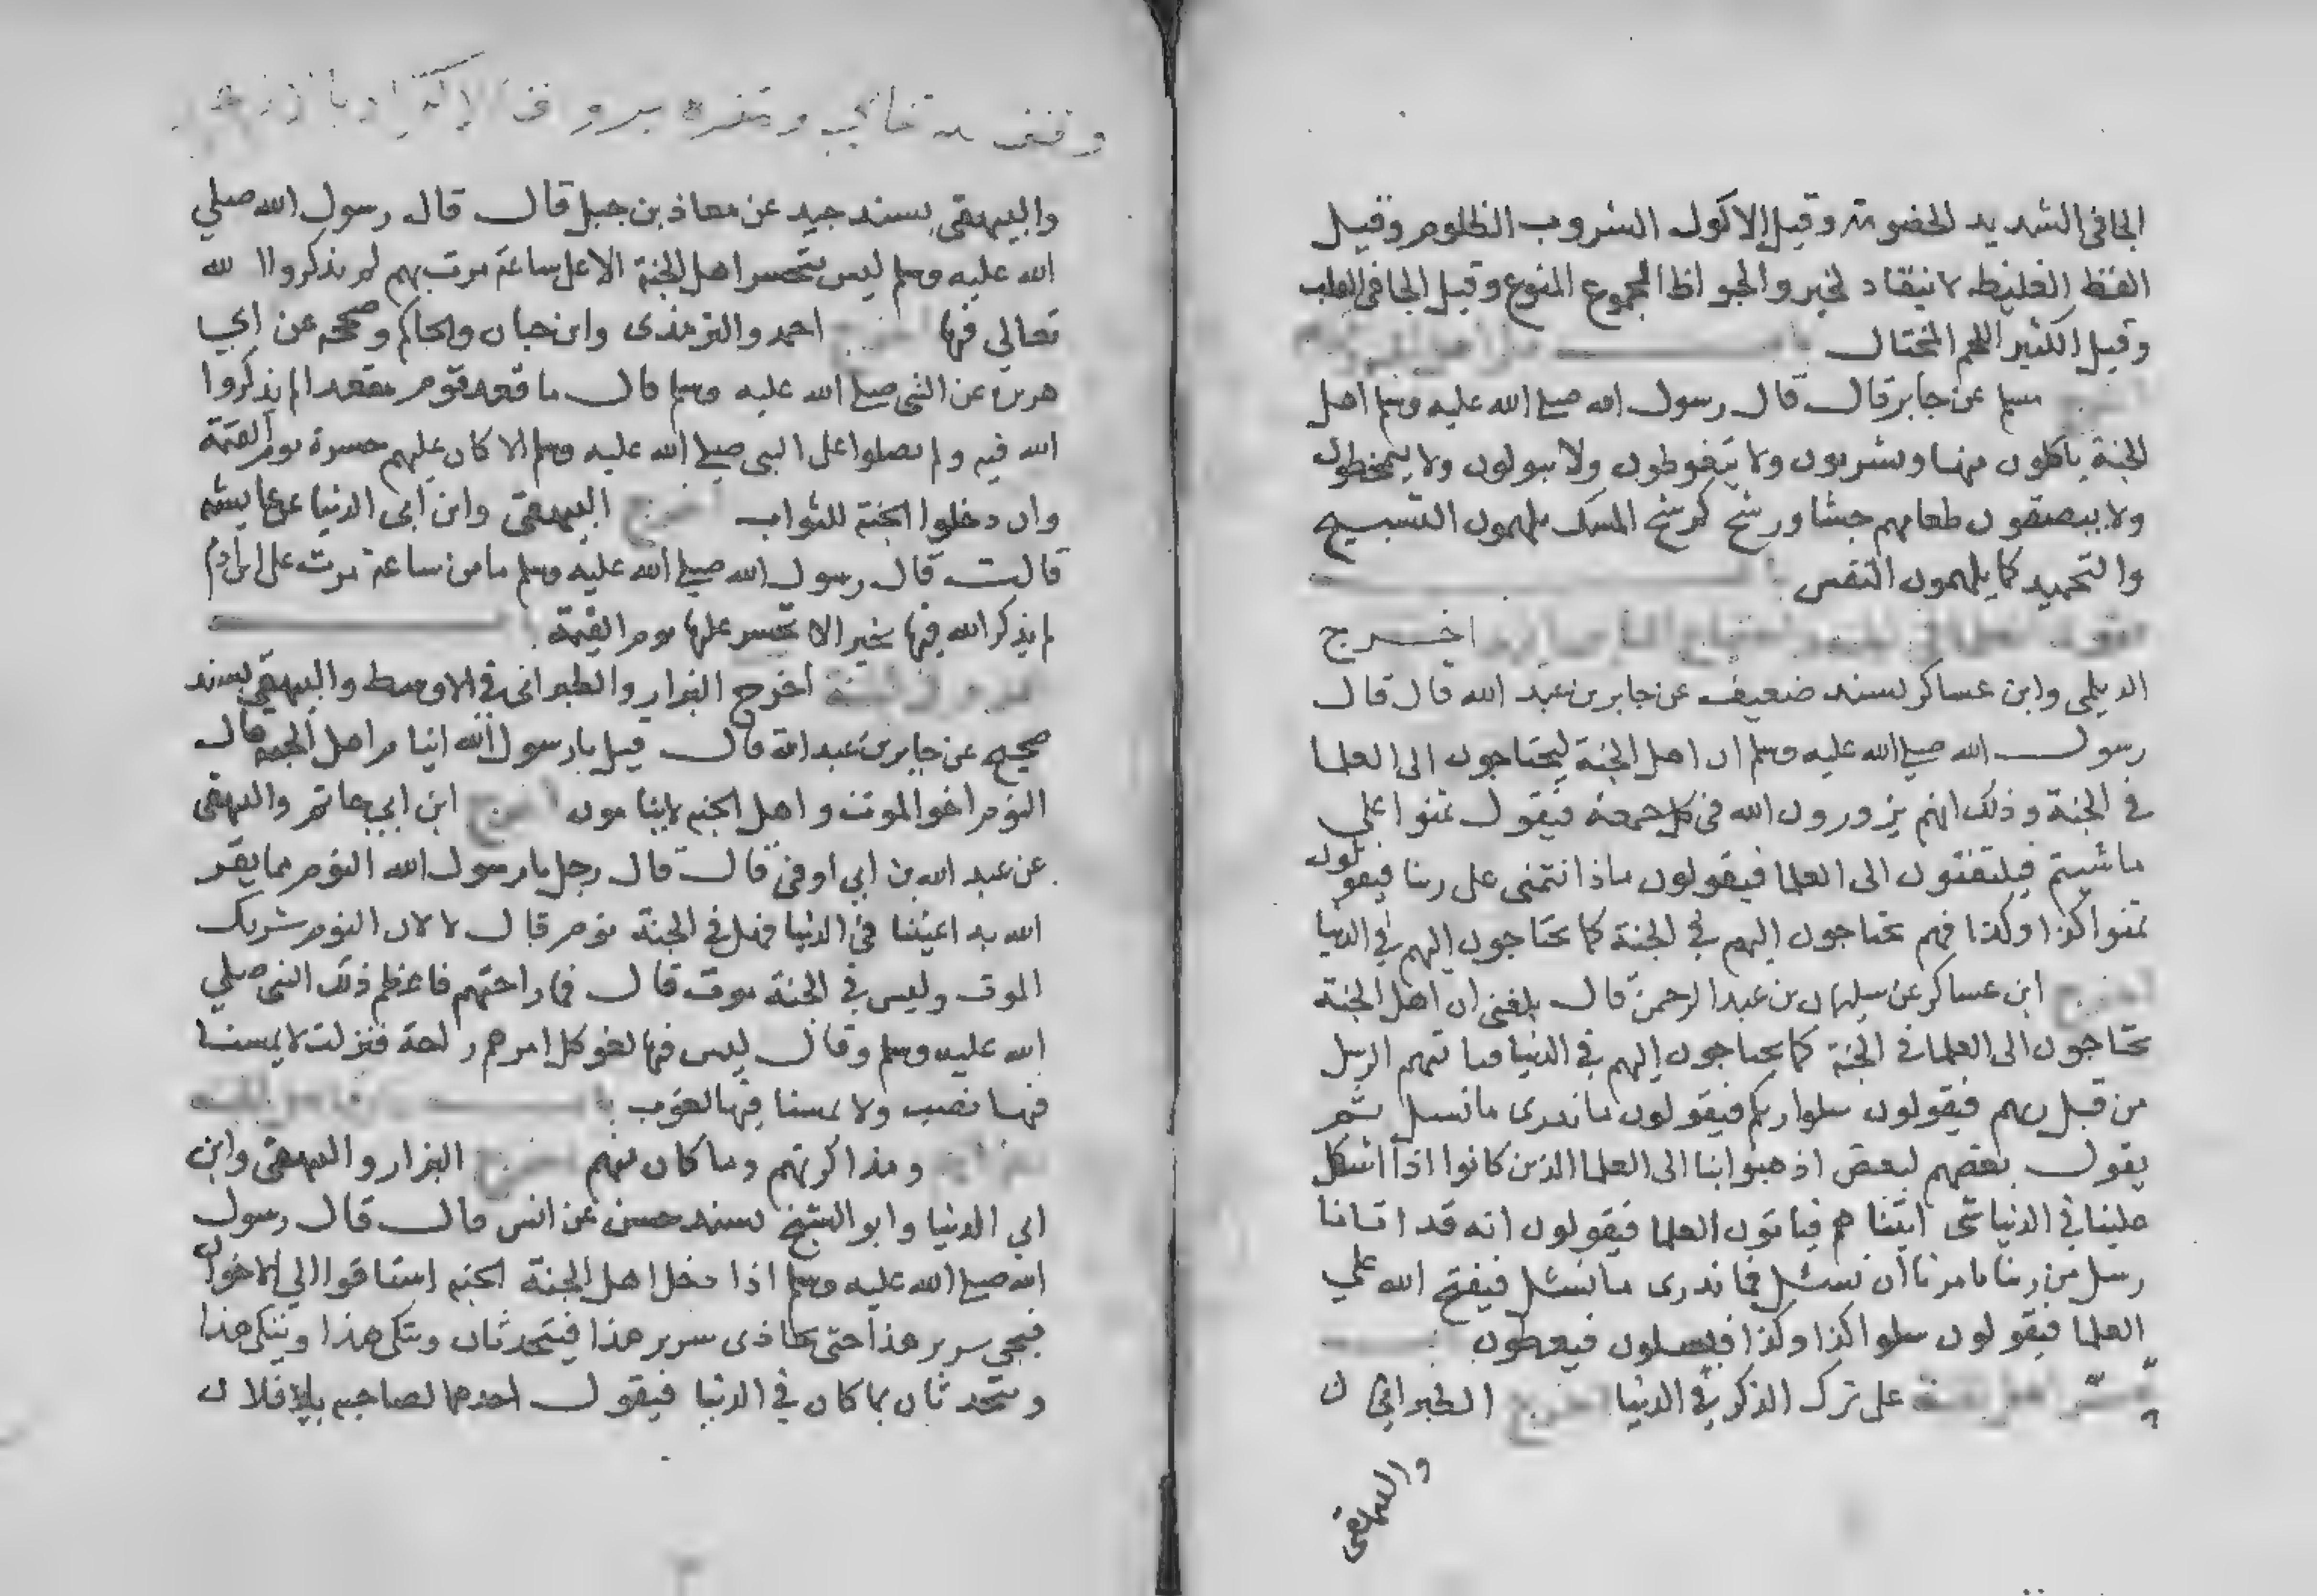 الجافي الشديد الخصومة وقيل الاكول الشروب الظلوم وقيل
الفظ الغليظ لا ينقاد لخير والجواظ الجموع المنوع وقيل الجافي القلب
وقيل الكثير اللحم المختال
مسلم عن جابر قال قال رسول الله صلى الله عليه وسلم اهل
الجنة ياكلون فيها ويشربون ولا يتغوطون ولا يبولون ولا يتمخطون
ولا يبصقون طعامهم جشا ورشح كرشح المسك يلهمون التسبيح
والتحميد كما يلهمون النفس
اخرج
الديلمي وابن عساكر بسند ضعيف عن جابر بن عبد الله قال قال
رسول الله صلى الله عليه وسلم ان اهل الجنة ليحتاجون الى العلما
في الجنة وذلك انهم يزورون الله في كل جمعة فيقول تمنوا علي
ما شيتم فيلتفتون الى العلما فيقولون ماذا نتمنى على ربنا فيقولون
تمنوا كذا وكذا فهم يحتاجون اليهم في الجنة كما يحتاجون اليهم في الدنيا
اخرج ابن عساكر عن سليمان بن عبد الرحمن قال بلغني ان اهل الجنة
يحتاجون الى العلما في الجنة كما يحتاجون اليهم في الدنيا فياتيهم الرسل
من قبل ربهم فيقولون سلوا ربكم فيقولون ما ندري ما نسل ثم
يقول بعضهم لبعض اذهبوا بنا الى العلما الذين كانوا اذا اشكل
علينا في الدنيا شي اتيناهم فياتون العلما فيقولون انه قد اتانا
رسل من ربنا يامرنا ان نسئل فما ندري ما نسئل فيفتح الله على
العلما فيقولون سلوا كذا وكذا فيسلون فيعطون
على ترك الذكر في الدنيا اخرج الطبراني
والبيهقي
والبيهقي بسند جيد عن معاذ بن جبل قال قال رسول الله صلى
الله عليه وسلم ليس يتحسر اهل الجنة الا على ساعة مرت بهم لم يذكروا الله
تعالي فيها اخرج احمد والترمذى وابن حبان والحاكم وصححه عن ابي
هريرة عن النبي صلى الله عليه وسلم قال ما قعد قوم مقعدا لم يذكروا
الله فيه ولم يصلوا على النبي صلى الله عليه وسلم الا كان عليهم حسرة يوم القيمة
وان دخلوا الجنة للثواب اخرج البيهقي وابن ابي الدنيا عن عايشة
قالت قال رسول الله صلى الله عليه وسلم ما من ساعة مرت على ابن ادم
لم يذكر الله فيها بخير الا تحسر عليها يوم القيمة
اخرج البزار والطبراني في الاوسط والبيهقي بسند
صحيح عن جابر بن عبد الله قال قيل يا رسول الله اينام اهل الجنة قال
النوم اخو الموت واهل الجنة لا ينامون اخرج ابن ابي حاتم والبيهقي
عن عبد الله بن ابي اوفى قال قال رجل يا رسول الله النوم مما يقر
الله به اعيننا في الدنيا فهل في الجنة نوم قال لا لان النوم شريك
الموت وليس في الجنة موت قال فما راحتهم فاعظم ذلك النبي صلي
الله عليه وسلم وقال ليس فيها لغو كل امرهم راحة فنزلت لا يمسنا
فيها نصب ولا يمسنا فيها لغوب
ومذاكرتهم وما كان منهم اخرج البزار والبيهقي وابن
ابي الدنيا وابو الشيخ بسند حسن عن انس قال قال رسول
الله صلى الله عليه وسلم اذا دخل اهل الجنة الجنة اشتاقوا الي الاخوان
فيجي سرير هذا حتى يحاذى سرير هذا فيتحدثان ويتكي هذا ويتكي هذا
ويتحدثان بما كان في الدنيا فيقول احدهما لصاحبه يا فلان